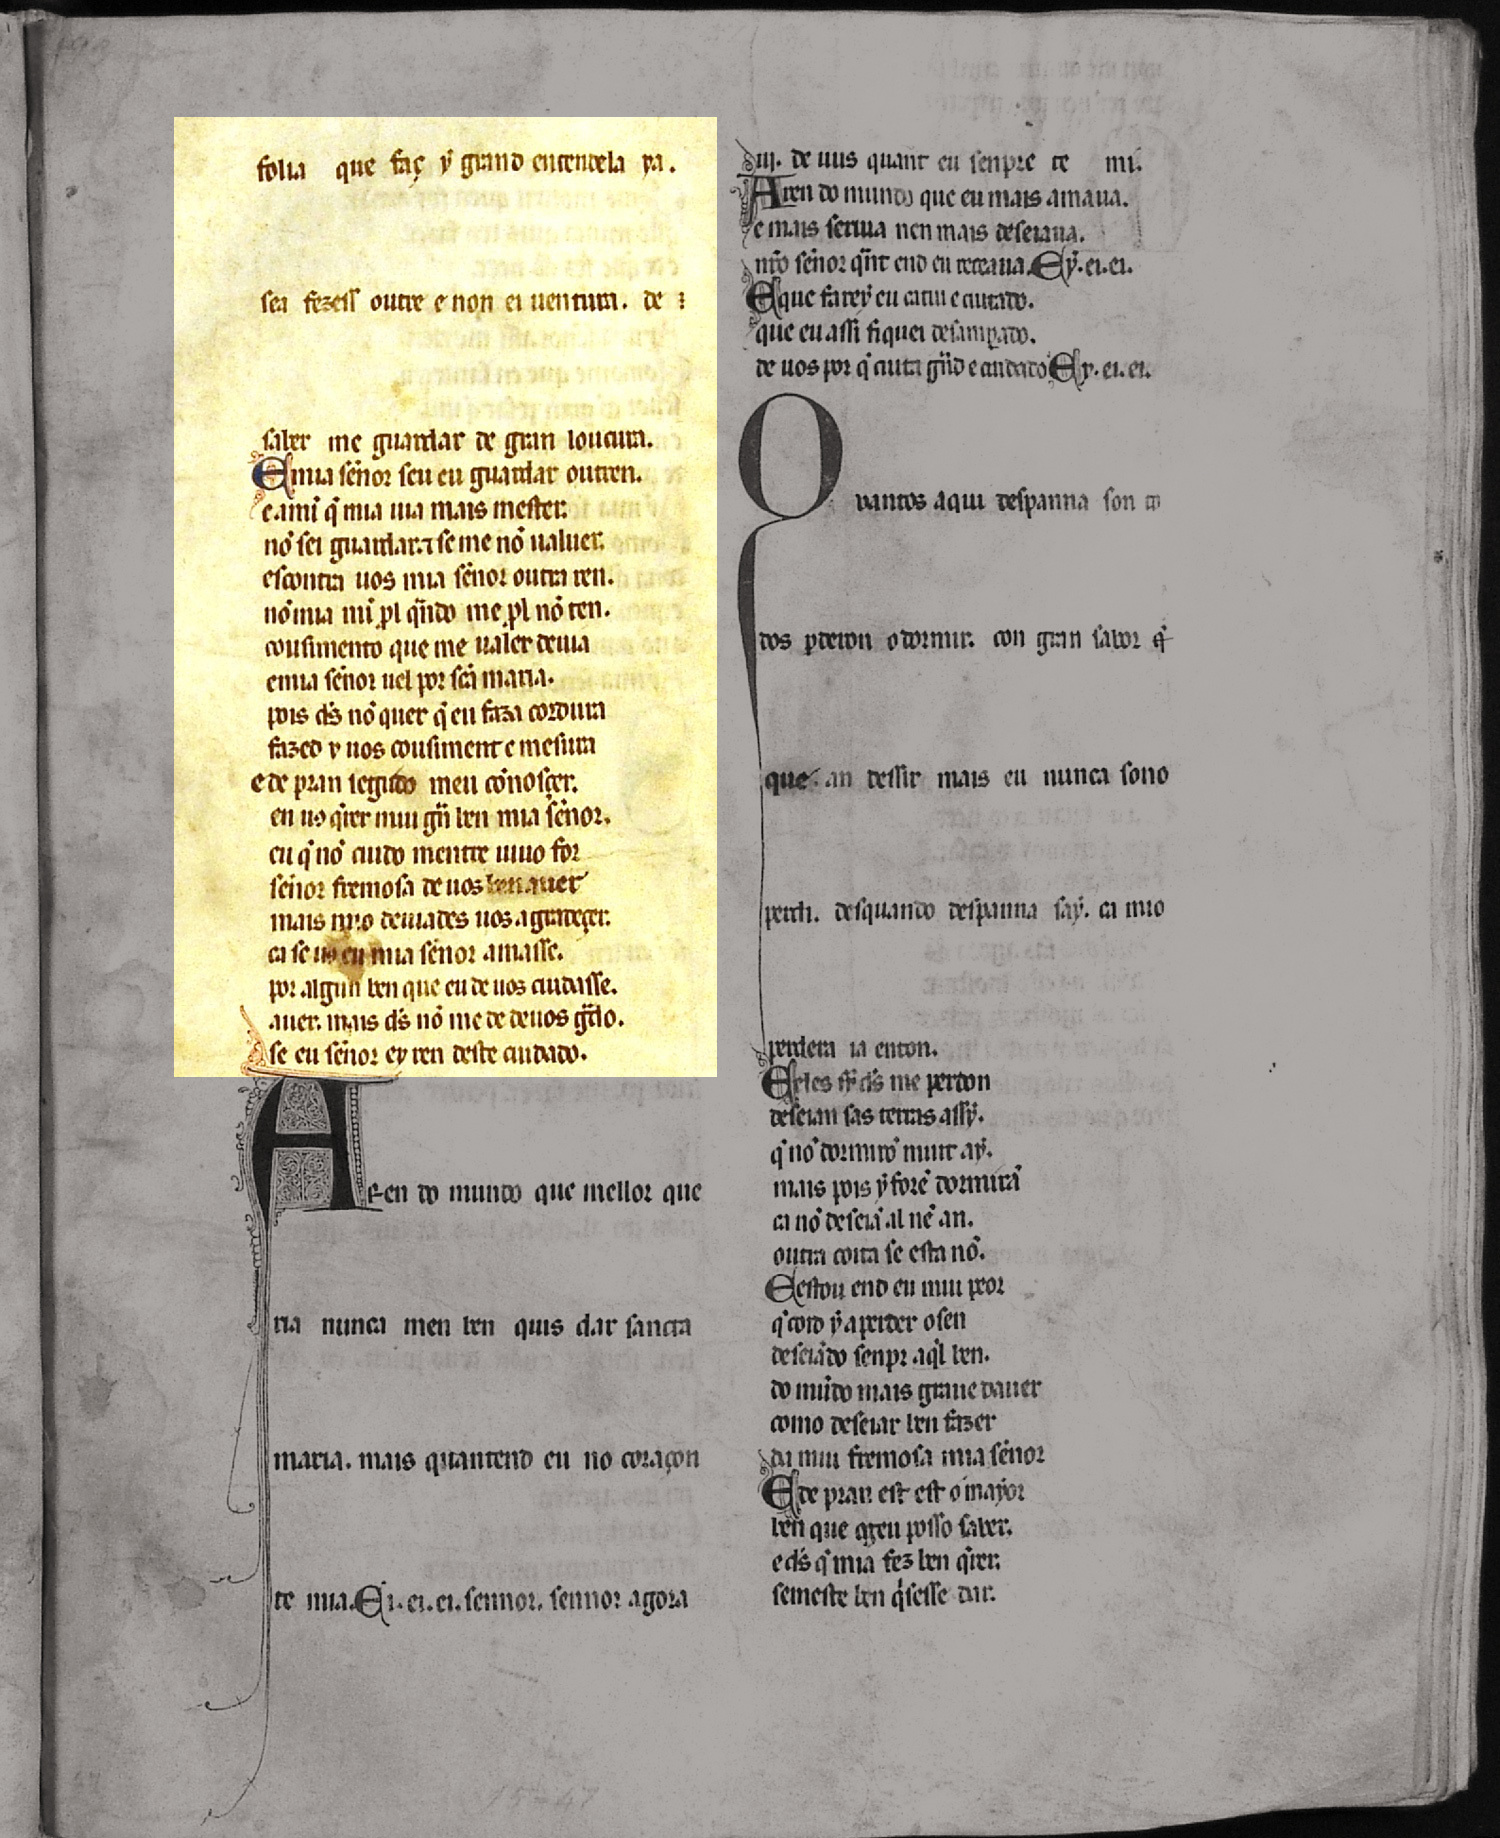 folia que faç ẏ grand entendela ia.
sei fezess outre e non ei uentura. de
saber me guardar de gran loucura.
E mia sẽnor seu eu guardar outren.
e ami q̃ mia uia mais mester.
nõ sei guardar. ⁊ se me nõ ualuer.
escontra uos mia sẽnor outra ren.
nõ mia mi pl qñdo me pl nõ ten.
cousimento que me ualer deuia
e mia sẽnor uel por sc̃a maria.
pois d̃s nõ quer q̃ eu faza cordura
fazed y uos cousiment e mesura
e de pran segũdo meu cõnosçer.
en uo q̃rer mui gñ ben mia sẽnor.
eu q̃ nõ cuido mentre uiuo for
sẽnor fremosa de uos ben auer
mais nõ deuiades uos agradeçer.
ca se uo eu mia sẽnor amasse.
por algun ben que eu de uos cuidasse.
auer. mais d̃s nõ me de deuos gr̃do.
se eu sẽnor ey ren deste cuidado.
A ren do mundo que mellor que
ria nunca men ben quis dar sancta
maria. mais quantend eu no coraçon
te mia. Ei. ei. ei. sennor. sennor agora
ui. de uus quant eu senpre te mi.
A ren do mundo que eu mais amaua.
e mais seruia nen mais deseiaua.
nr̃o sẽnor qñt end eu receaua. Eẏ. ei. ei.
E que farey eu catiu e cuitado.
que eu assi fiquei desanparado.
de uos por q̃ cuita gr̃nd e cuidado Ey. ei. ei.
Quantos aqui despanna son to
dos perderon o dormir. con gran sabor q̃
que an dessir mais eu nunca sono
perdi. desquando despanna saẏ. ca mio
perdera ia enton.
E eles si d̃s me perdon
deseian sas terras assẏ.
q̃ nõ dormirõ muit aẏ.
mais pois ẏ forẽ dormirã
ca nõ deseiã al nẽ an.
outra coita se esta nõ.
E estou end eu mui peor
q̃ coid ẏ a perder o sen
deseiãdo senpr aq̃l ben.
do mũdo mais graue dauer
como deseiar ben fazer
da mui fremosa mia sẽnor
E de pran est est o mayor
ben que ogeu posso saber.
e d̃s q̃ mia fez ben q̃rer.
semeste ben q̃sesse dar.